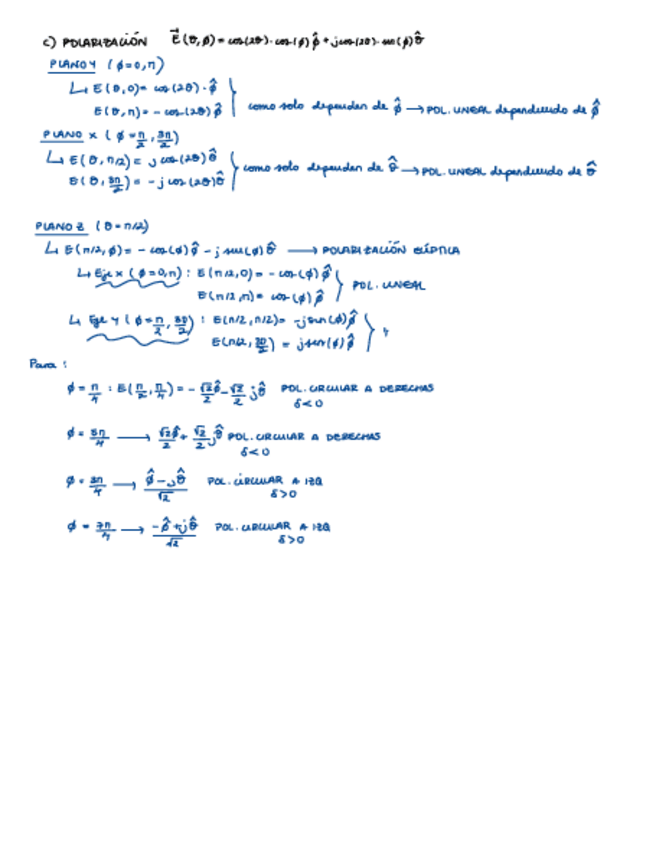 c) POLARIZACIÓN E⃗(θ,ϕ) = cos(2θ)·cos(ϕ) ϕ̂ + jcos(2θ)·sen(ϕ) θ̂
PLANO Y (ϕ=0,π)
↳ E(θ,0) = cos(2θ)·ϕ̂
E(θ,π) = -cos(2θ) ϕ̂
} como solo dependen de ϕ̂ → POL. LINEAL dependiendo de ϕ̂
PLANO X (ϕ = π/2, 3π/2)
↳ E(θ,π/2) = j cos(2θ) θ̂
E(θ, 3π/2) = -j cos(2θ) θ̂
} como solo dependen de θ̂ → POL. LINEAL dependiendo de θ̂
PLANO Z (θ=π/2)
↳ E(π/2,ϕ) = -cos(ϕ) ϕ̂ - j sen(ϕ) θ̂ → POLARIZACIÓN ELÍPTICA
↳ Eje x (ϕ=0,π) : E(π/2,0) = -cos(ϕ) ϕ̂
E(π/2,π) = cos(ϕ) ϕ̂
} POL. LINEAL
↳ Eje Y (ϕ = π/2, 3π/2) : E(π/2,π/2) = -jsen(ϕ) ϕ̂
E(π/2, 3π/2) = jsen(ϕ) ϕ̂
} "
Para :
ϕ = π/4 : E(π/2, π/4) = - √2/2 ϕ̂ - √2/2 j θ̂ POL. CIRCULAR A DERECHAS
δ<0
ϕ = 5π/4 → √2/2 ϕ̂ + √2/2 j θ̂ POL. CIRCULAR A DERECHAS
δ<0
ϕ = 3π/4 → (ϕ̂ - jθ̂)/√2 POL. CIRCULAR A IZQ
δ>0
ϕ = 7π/4 → (-ϕ̂ + jθ̂)/√2 POL. CIRCULAR A IZQ
δ>0